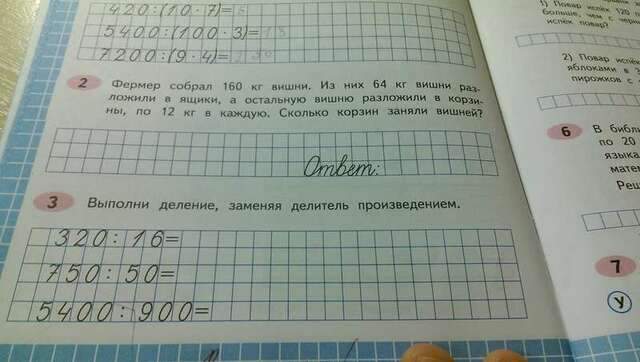 420:(10·7)=6
5400:(100·3)=18
7200:(9·4)=200
2 Фермер собрал 160 кг вишни. Из них 64 кг вишни раз-
ложили в ящики, а остальную вишню разложили в корзи-
ны, по 12 кг в каждую. Сколько корзин заняли вишней?
Ответ:
3 Выполни деление, заменяя делитель произведением.
320:16=
750:50=
5400:900=
1) Повар испёк 120
больше, чем с черн
испёк повар?
2) Повар испёк
яблоками в
пирожков с
6 В библи
по 20
языка
матем
Реш
7
У